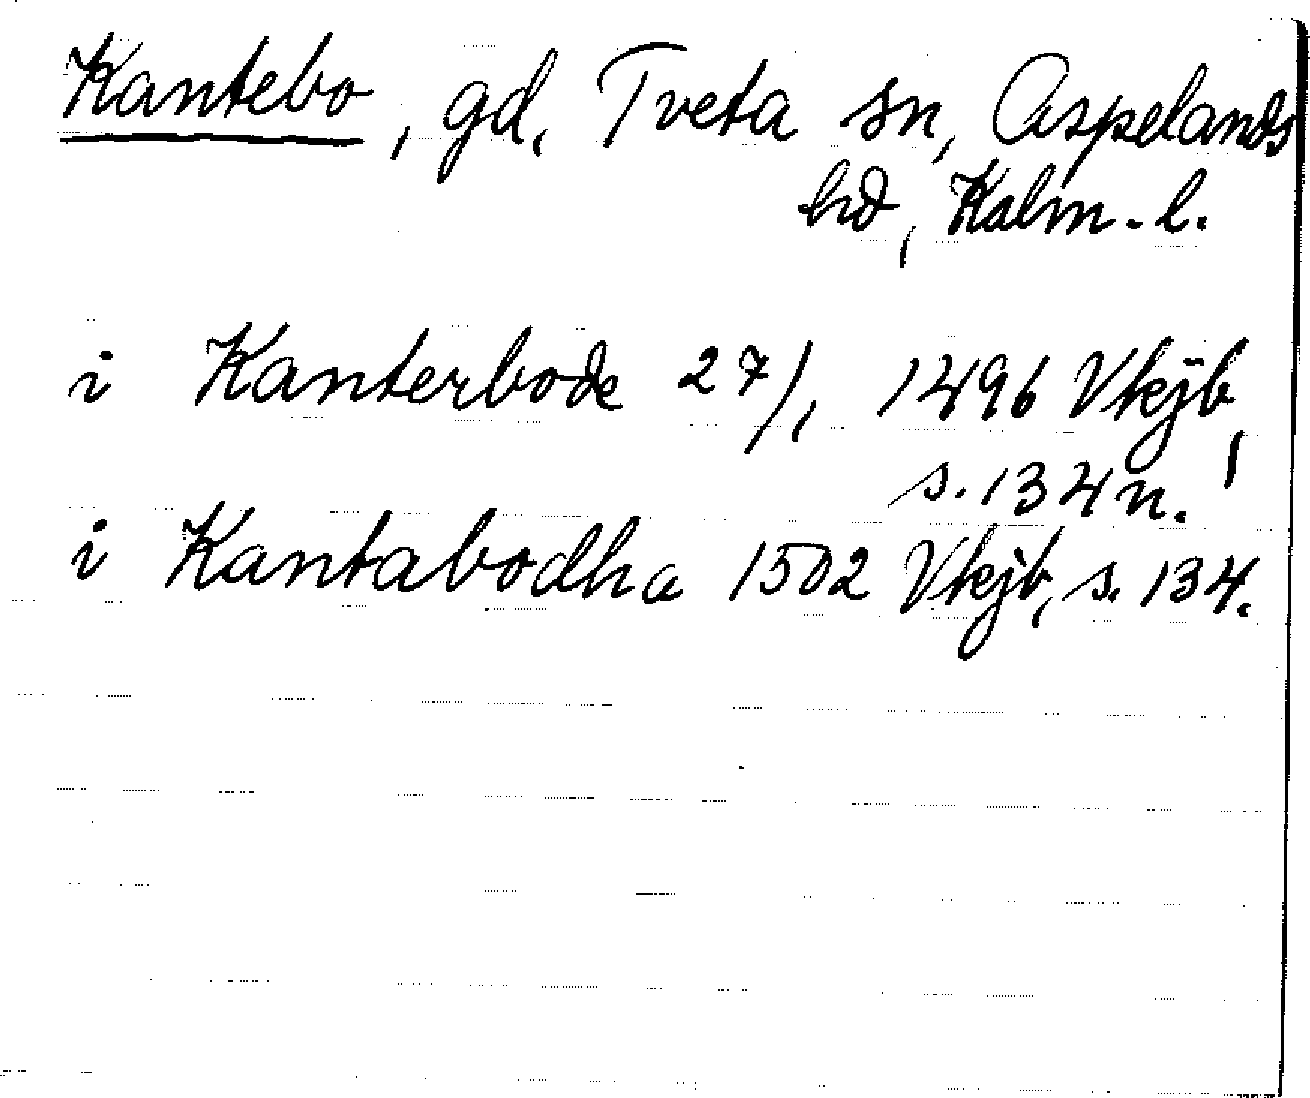 Kantebo, gd, Tveta sn, Aspelands
hd, Kalm. l.
i Kanterbode 27/1 1496 Vkjb,
s. 134 n.
i Kantabodha 1502 Vkjb, s. 134.